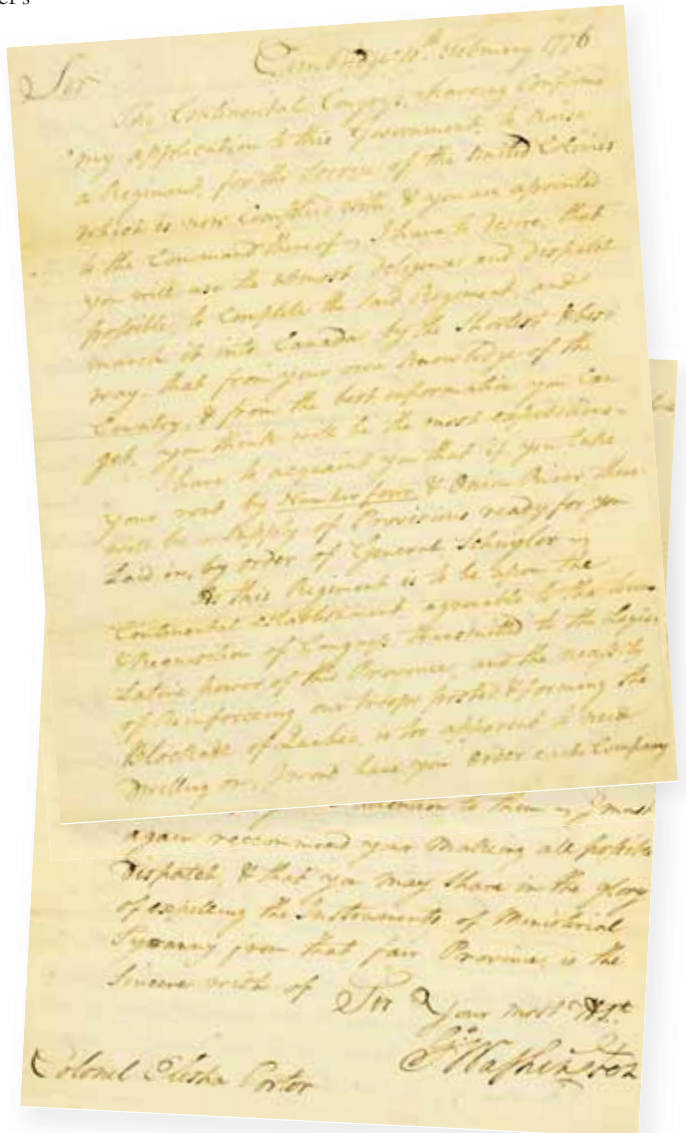 Sir
Cambridge 10th February 1776
The Continental Congress, having confirmed
my application to this Government to raise
a Regiment, for the Service of the United Colonies
which is now Complied with, & you are apointed
to the Command thereof I have to desire, that
you will use the utmost deligence and dispatch
possible, to Complete the said Regiment, and
march it into Canada by the Shortest & best
way, that from your own knowledge of the
Country, & from the best information you Can
get, you think will be the most expeditious
I have to acquaint you that if you take
your rout by Number four & Onion River there
will be a Supply of Provisions ready for you
Laid in, by order of General Schuyler
As this Regiment is to be upon the
Continental establishment agreeable to the
& Requisition of Congress transmitted to the Legis-
lative power of this Province, and the necessity
of Reinforcing our troops posted & forming the
Blockade of Quebec, is too apparent to need
Dwelling on, I woud have you order each Company
attention to them I must
again reccommend your making all possible
Dispatch, & that you may Share in the glory
of expelling the Instruments of Ministerial
Tyranny from that fair Province is the
Sincere wish of Sir Your most
Go Washington
Colonel Elisha Porter